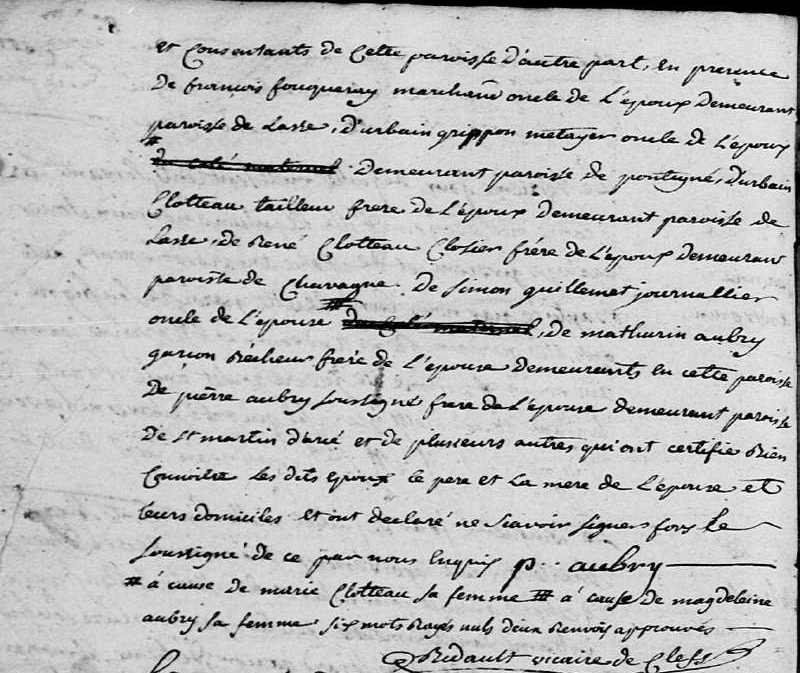 et Consentants de Cette paroisse D'autre part, en presence
De francois fouqueray marchand oncle de L'epoux Demeurant
paroisse de Lasse, D'urbain grippon metayer oncle de L'epoux
# du coté maternel Demeurant paroisse de pontigné, D'urbain
Clotteau tailleur frere de L'epoux demeurant paroisse de
Lasse, de René Clotteau Closier frére de L'epoux demeurant
paroisse de Chavagne. De Simon guillemet journallier
oncle de L'epouse # du coté maternel, de mathurin aubry
garçon Bécheur frere de L'epouse demeurants en cette paroisse
De pierre aubry soussigné frere de L'epouse demeurant paroisse
De st martin d'arcé et de plusieurs autres qui ont certifie Bien
Connoitre Les dits epoux le pere et La mere de L'epouse et
leurs domiciles et ont declaré ne scavoir signer fors le
soussigné de ce par nous Enquis p. aubry
# á cause de marie Clotteau sa femme # á cause De magdeleine
aubry sa femme six mots Rayés nuls deux Renvois approuvés
Ridault vicaire de Clefs